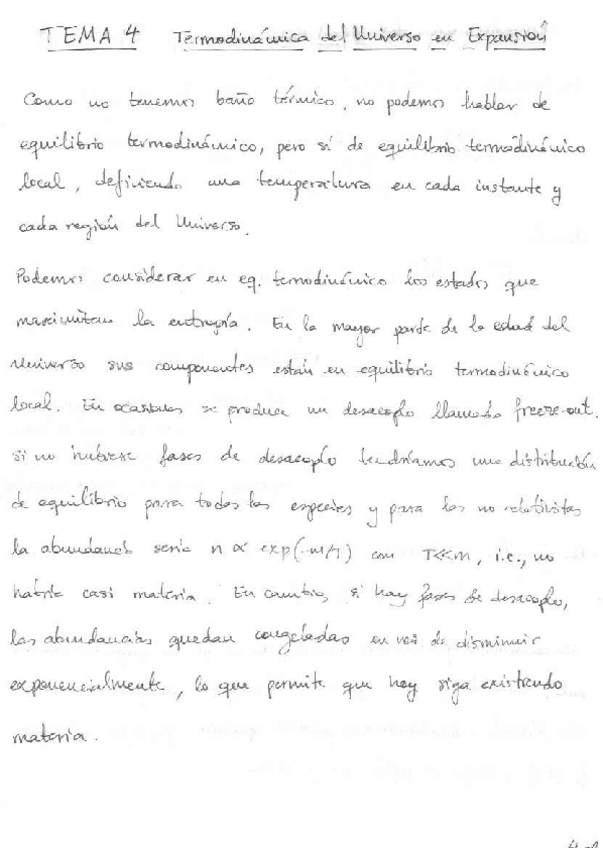 TEMA 4 Termodinámica del Universo en Expansión
Como no tenemos baño térmico, no podemos hablar de
equilibrio termodinámico, pero sí de equilibrio termodinámico
local, definiendo una temperatura en cada instante y
cada región del Universo.
Podemos considerar en eq. termodinámico los estados que
maximitan la entropía. En la mayor parte de la edad del
Universo sus componentes están en equilibrio termodinámico
local. En ocasiones se produce un desacoplo llamado freeze-out.
si no hubiese fases de desacoplo tendríamos una distribución
de equilibrio para todas las especies y para las no relativistas
la abundancia sería n ∝ exp(-m/T) con T<<m, i.e., no
habría casi materia. En cambio, si hay fases de desacoplo,
las abundancias quedan congeladas en vez de disminuir
exponencialmente, lo que permite que hoy siga existiendo
materia.